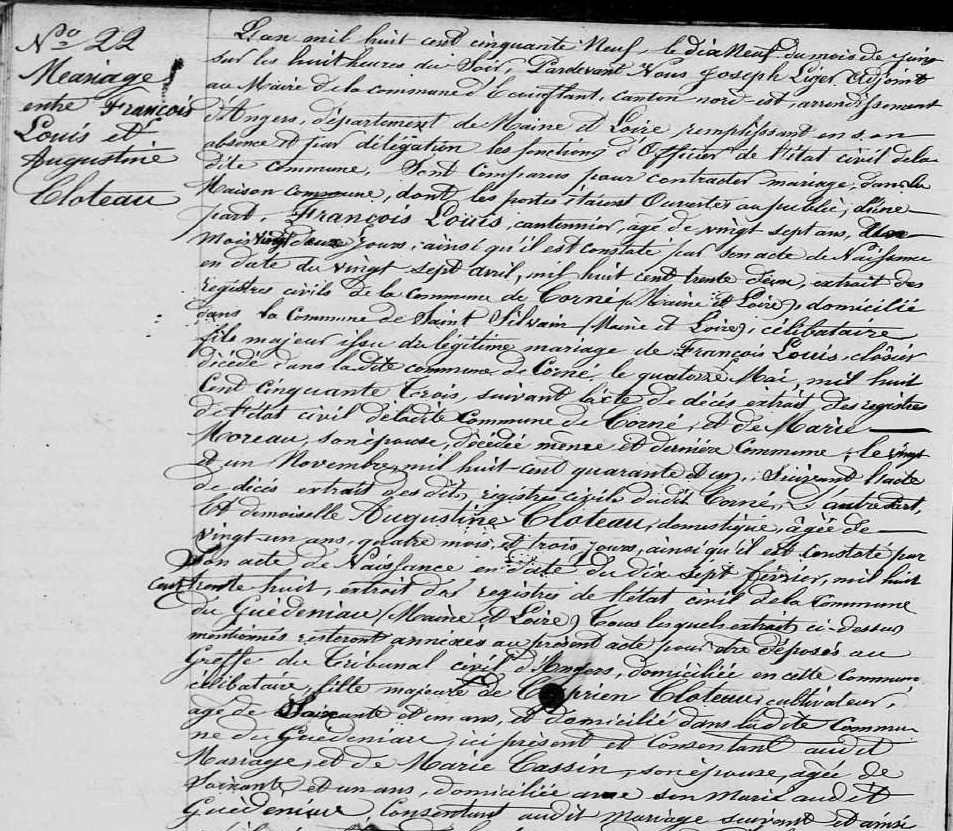 No 22
Mariage
entre François
Louis et
Augustine
Cloteau
L'an mil huit cent cinquante Neuf, le dix Neuf du mois de juin
sur les huit heures du Soir, Pardevant Nous Joseph Liger Adjoint
au Maire de la commune d'Ecouflant, canton nord-est, arrondissement
d'Angers, département de Maine et Loire remplissant en son
absence et par délégation les fonctions d'Officier de l'état civil de la
dite commune, Sont Comparus pour contracter mariage, dans la
Maison commune, dont les portes étaient Ouvertes au public, d'une
part, François Louis, cantonnier, âgé de vingt sept ans, Un
mois vingt deux jours, ainsi qu'il est constaté par son acte de Naissance
en date du vingt sept avril, mil huit cent trente deux, extrait des
registres civils de la Commune de Corné (Maine et Loire), domicilié
dans la Commune de Saint Silvain (Maine et Loire), célibataire
fils majeur issu du légitime mariage de François Louis, closier
décédé dans la dite commune de Corné le quatorze Mai, mil huit
Cent cinquante Trois, suivant l'acte de décès extrait des registres
de l'état civil de la dite Commune de Corné, et de Marie
Moreau, son épouse, décédée même et dernière Commune, le vingt
et un Novembre, mil huit-cent quarante et un, Suivant l'acte
de décès extrait des dits registres civils du dit Corné, D'autre Part,
Et demoiselle Augustine Cloteau, domestique, âgée de
vingt-un ans, quatre mois, et trois jours, ainsi qu'il est constaté par
son acte de Naissance en date du dix sept février, mil huit
cent trente huit, extrait des registres de l'état civil de la Commune
du Guédeniau (Maine et Loire) Tous lesquels extraits ci-dessus
mentionnés resteront annexés au présent acte pour être déposés au
Greffe du Tribunal civil d'Angers, domiciliée en cette Commune
célibataire, fille majeure de Cyprien Cloteau, cultivateur,
âgé de Soixante et un ans, et domicilié dans la dite Commu-
ne du Guédeniau, ici présent et Consentant audit
Mariage, et de Marie Cassin, son épouse, agée de
soixante et un ans, domiciliée avec son Mari audit
Guédeniau Consentant audit mariage suivant et ainsi